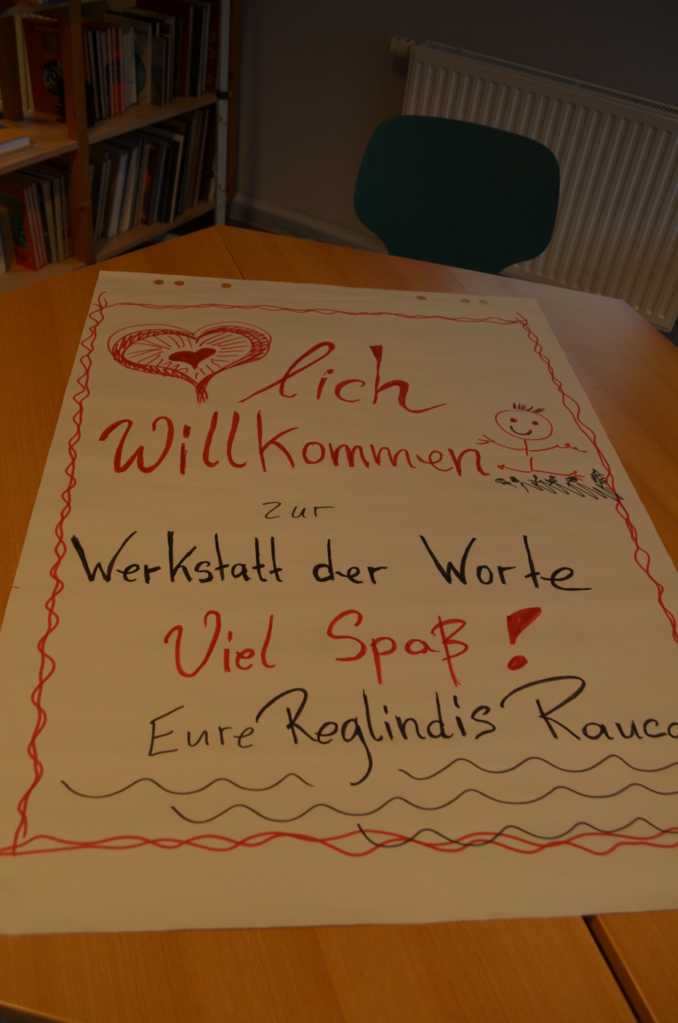 lich
Willkommen
zur
Werkstatt der Worte
Viel Spaß!
Eure Reglindis